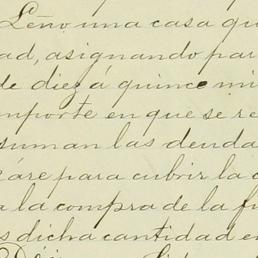 Leño una casa qu
ad, asignando par
de diez á quince mi
mporte en que se re
suman las deuda
are para cubrir la c
a la compra de la fi
s dicha cantidad en